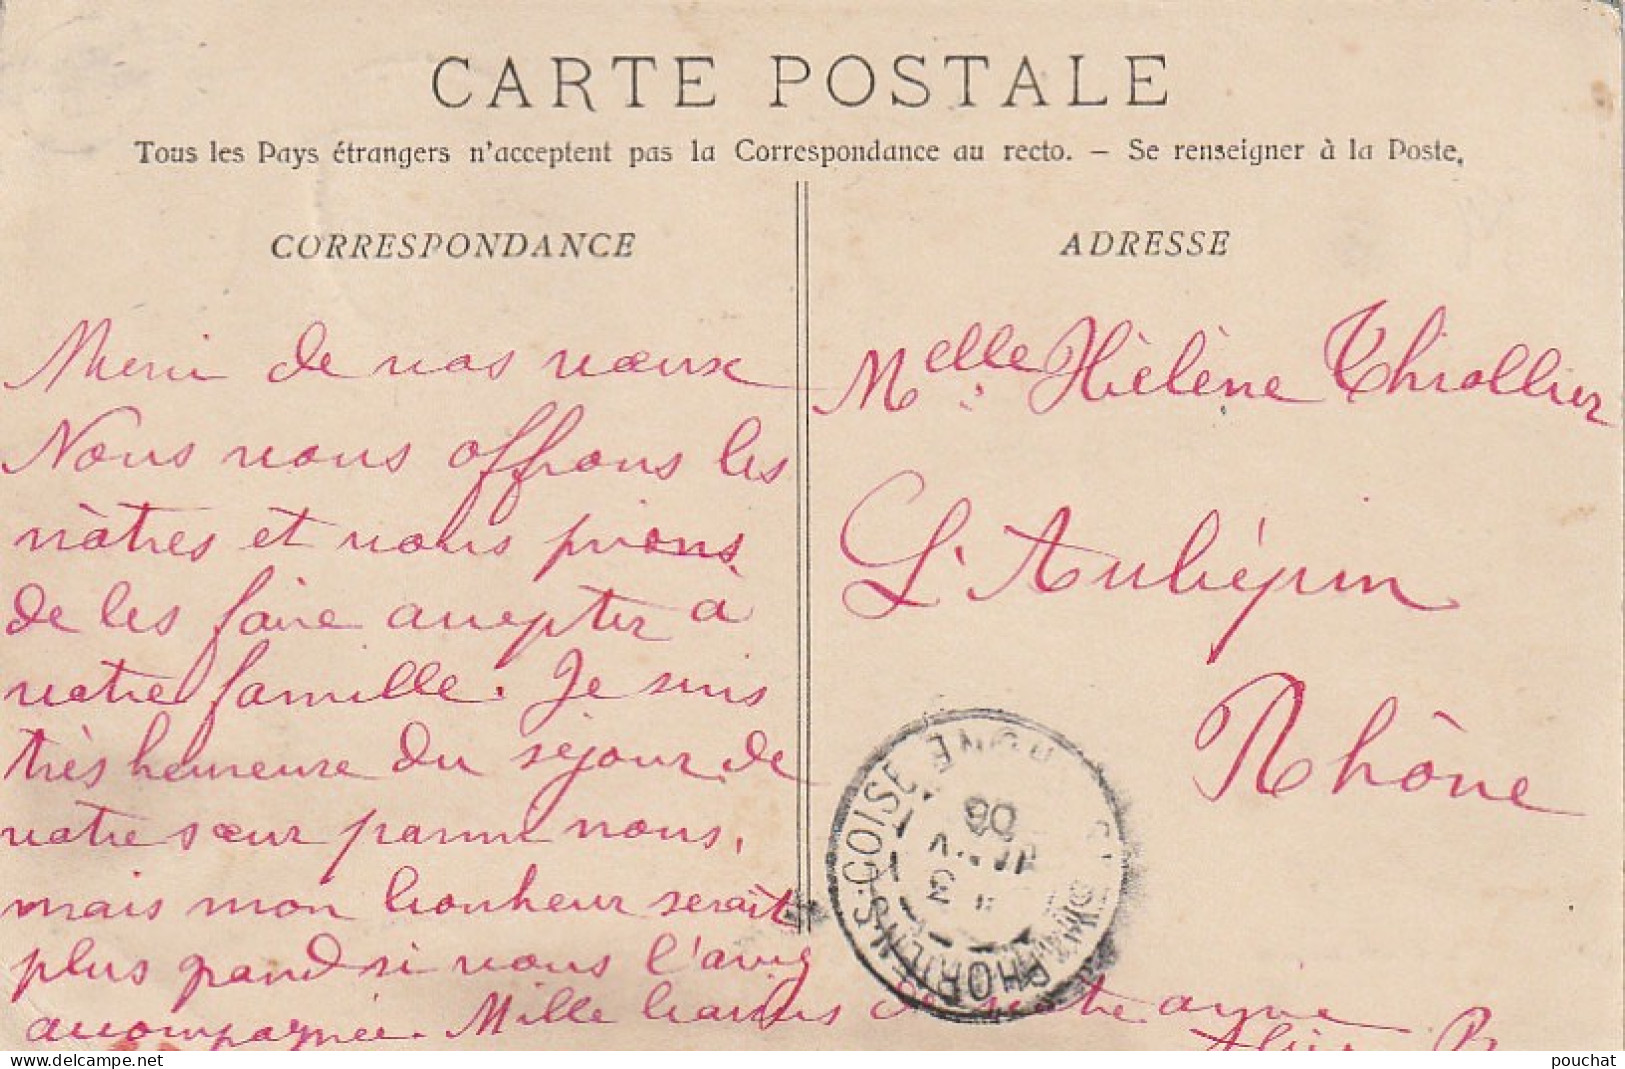 CARTE POSTALE
Tous les Pays étrangers n'acceptent pas la Correspondance au recto. — Se renseigner à la Poste.
CORRESPONDANCE
Merci de vos vœux
Nous vous offrons les
nôtres et vous prions
de les faire accepter a
votre famille. Je suis
très heureuse du séjour de
votre sœur parmi nous,
mais mon bonheur serait
plus grand si vous l'aviez
accompagnée. Mille baisers de votre amie
ADRESSE
Melle Hélène Thiollier
L'Aubépin
Rhône
ST SYMPHORIEN-S-COISE RHONE
3
JANV
06
delcampe.net
pouchat